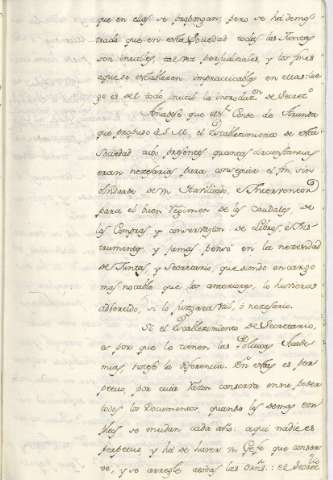 que en ellas se propongan; pero se ha demos
trado que en esta Sociedad todas las Juntas
son inutiles, tal vez perjudiciales, y los fines
a que se establecen impracticables en ellas: lue
go es del todo inutil la introducn de Secreto
Añadese que el Conde de Aranda
que propuso a S. M. el establecimiento de esta
Sociedad
presentes quantas circunstancias
eran necesarias para conseguir el fin, sin
olvidarse de un
e Intervencion
para el buen regimen de los caudales, de
las Compras y conservacion de Libros, e Ins
trumentos, y jamas pensó en la necesidad
de Juntas, y Secretario, que siendo encargo
mas notable que los anteriores, lo huviera
advertido, si lo juzgara util, ó necesario.
Si el Establecimiento de Secretario,
es por que lo tienen las Politicas Acade
mias, notese la diferencia. En estas es per
petuo, por cuia razon conserva en su poder
todos los Documentos, quando los demas em
pleos se mudan cada año; aqui nadie es
perpetuo y ha de haver un Gefe que conser
ve, y se arregle
las Ordns: el Secreto